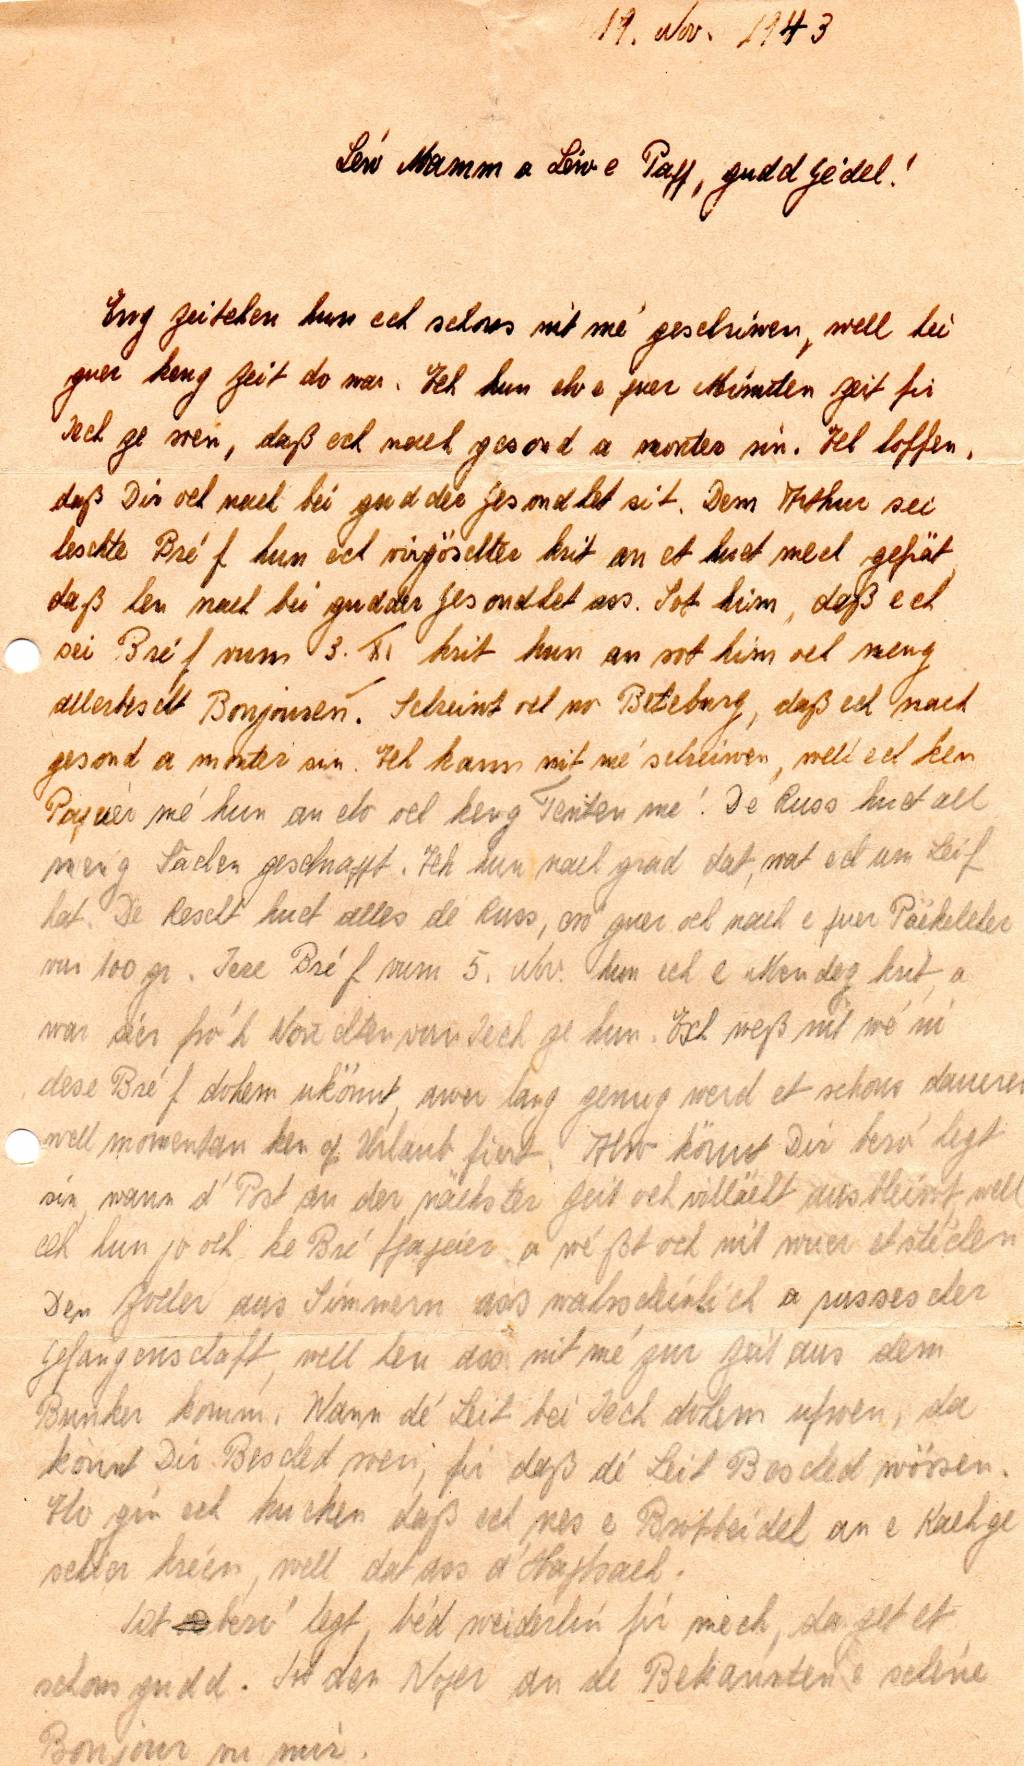 19. Nov. 1943
Léw Mamm a Léwe Papp, gudd Gédel!
Eng Zeitchen hun ech schons nit mé geschriwen, well hei
guer keng Zeit do war. Ech hun elo e puer Minuten Zeit fir
Iech ze soen, daß ech nach gesond a monter sin. Ech hoffen,
daß Dir och nach bei gudder Gesondhet sit. Dem Arthur sei
leschte Bréf hun ech virgöschter krit an et huet mech gefrät
daß hen nach bei gudder Gesondhet ass. Sot him, daß ech
sei Bréf vum 3. XI. krit hun an sot him och meng
allerbescht Bonjouren. Schreiwt och no Beteburg, daß ech nach
gesond a monter sin. Ech kann nit mé schreiwen, well ech ken
Papéer mé hun an elo och keng Tenten mé! De Russ huet all
meng Sachen geschnappt. Ech hun nach grad dat, wat ech um Leif
hat. De Rescht huet alles de Russ, wo' guer och nach e puer Päckelcher
vun 100 gr. Iere Bréf vum 5. Nov. hun ech e Mendeg krit, a
war séer fro'h Norichten vun Iech ze hun. Ech weß nit wé ni
dese Bréf dohem ukönnt, awer lang genug werd et schons daueren
well momentan ken op Urlaub fiert. Also könnt Dir bero' legt
sin, wann d' Post an der nächster Zeit och villäicht ausbleiwt, well
ech hun jo och ke Bréfpapéier a wéßt och nit wuer et stéchen
Den Zoller aus Simmern ass wahrscheinlich a russescher
Gefangenschaft, well hen ass nit mé zur Zeit aus dem
Bunker komm. Wann dé Leit bei Iech dohem ufroen, da
könnt Dir Besched soen, fir daß dé Leit Besched wössen.
Elo gin ech kucken daß ech nes e Brotbeidel an e Kachge
scheer kréen, well dat ass d' Haptsach.
Sit bero' legt, béd weiderhin fir mech, da get et
schons gudd. Sot den Noper an de Bekannten e schéne
Bonjour vu mir.